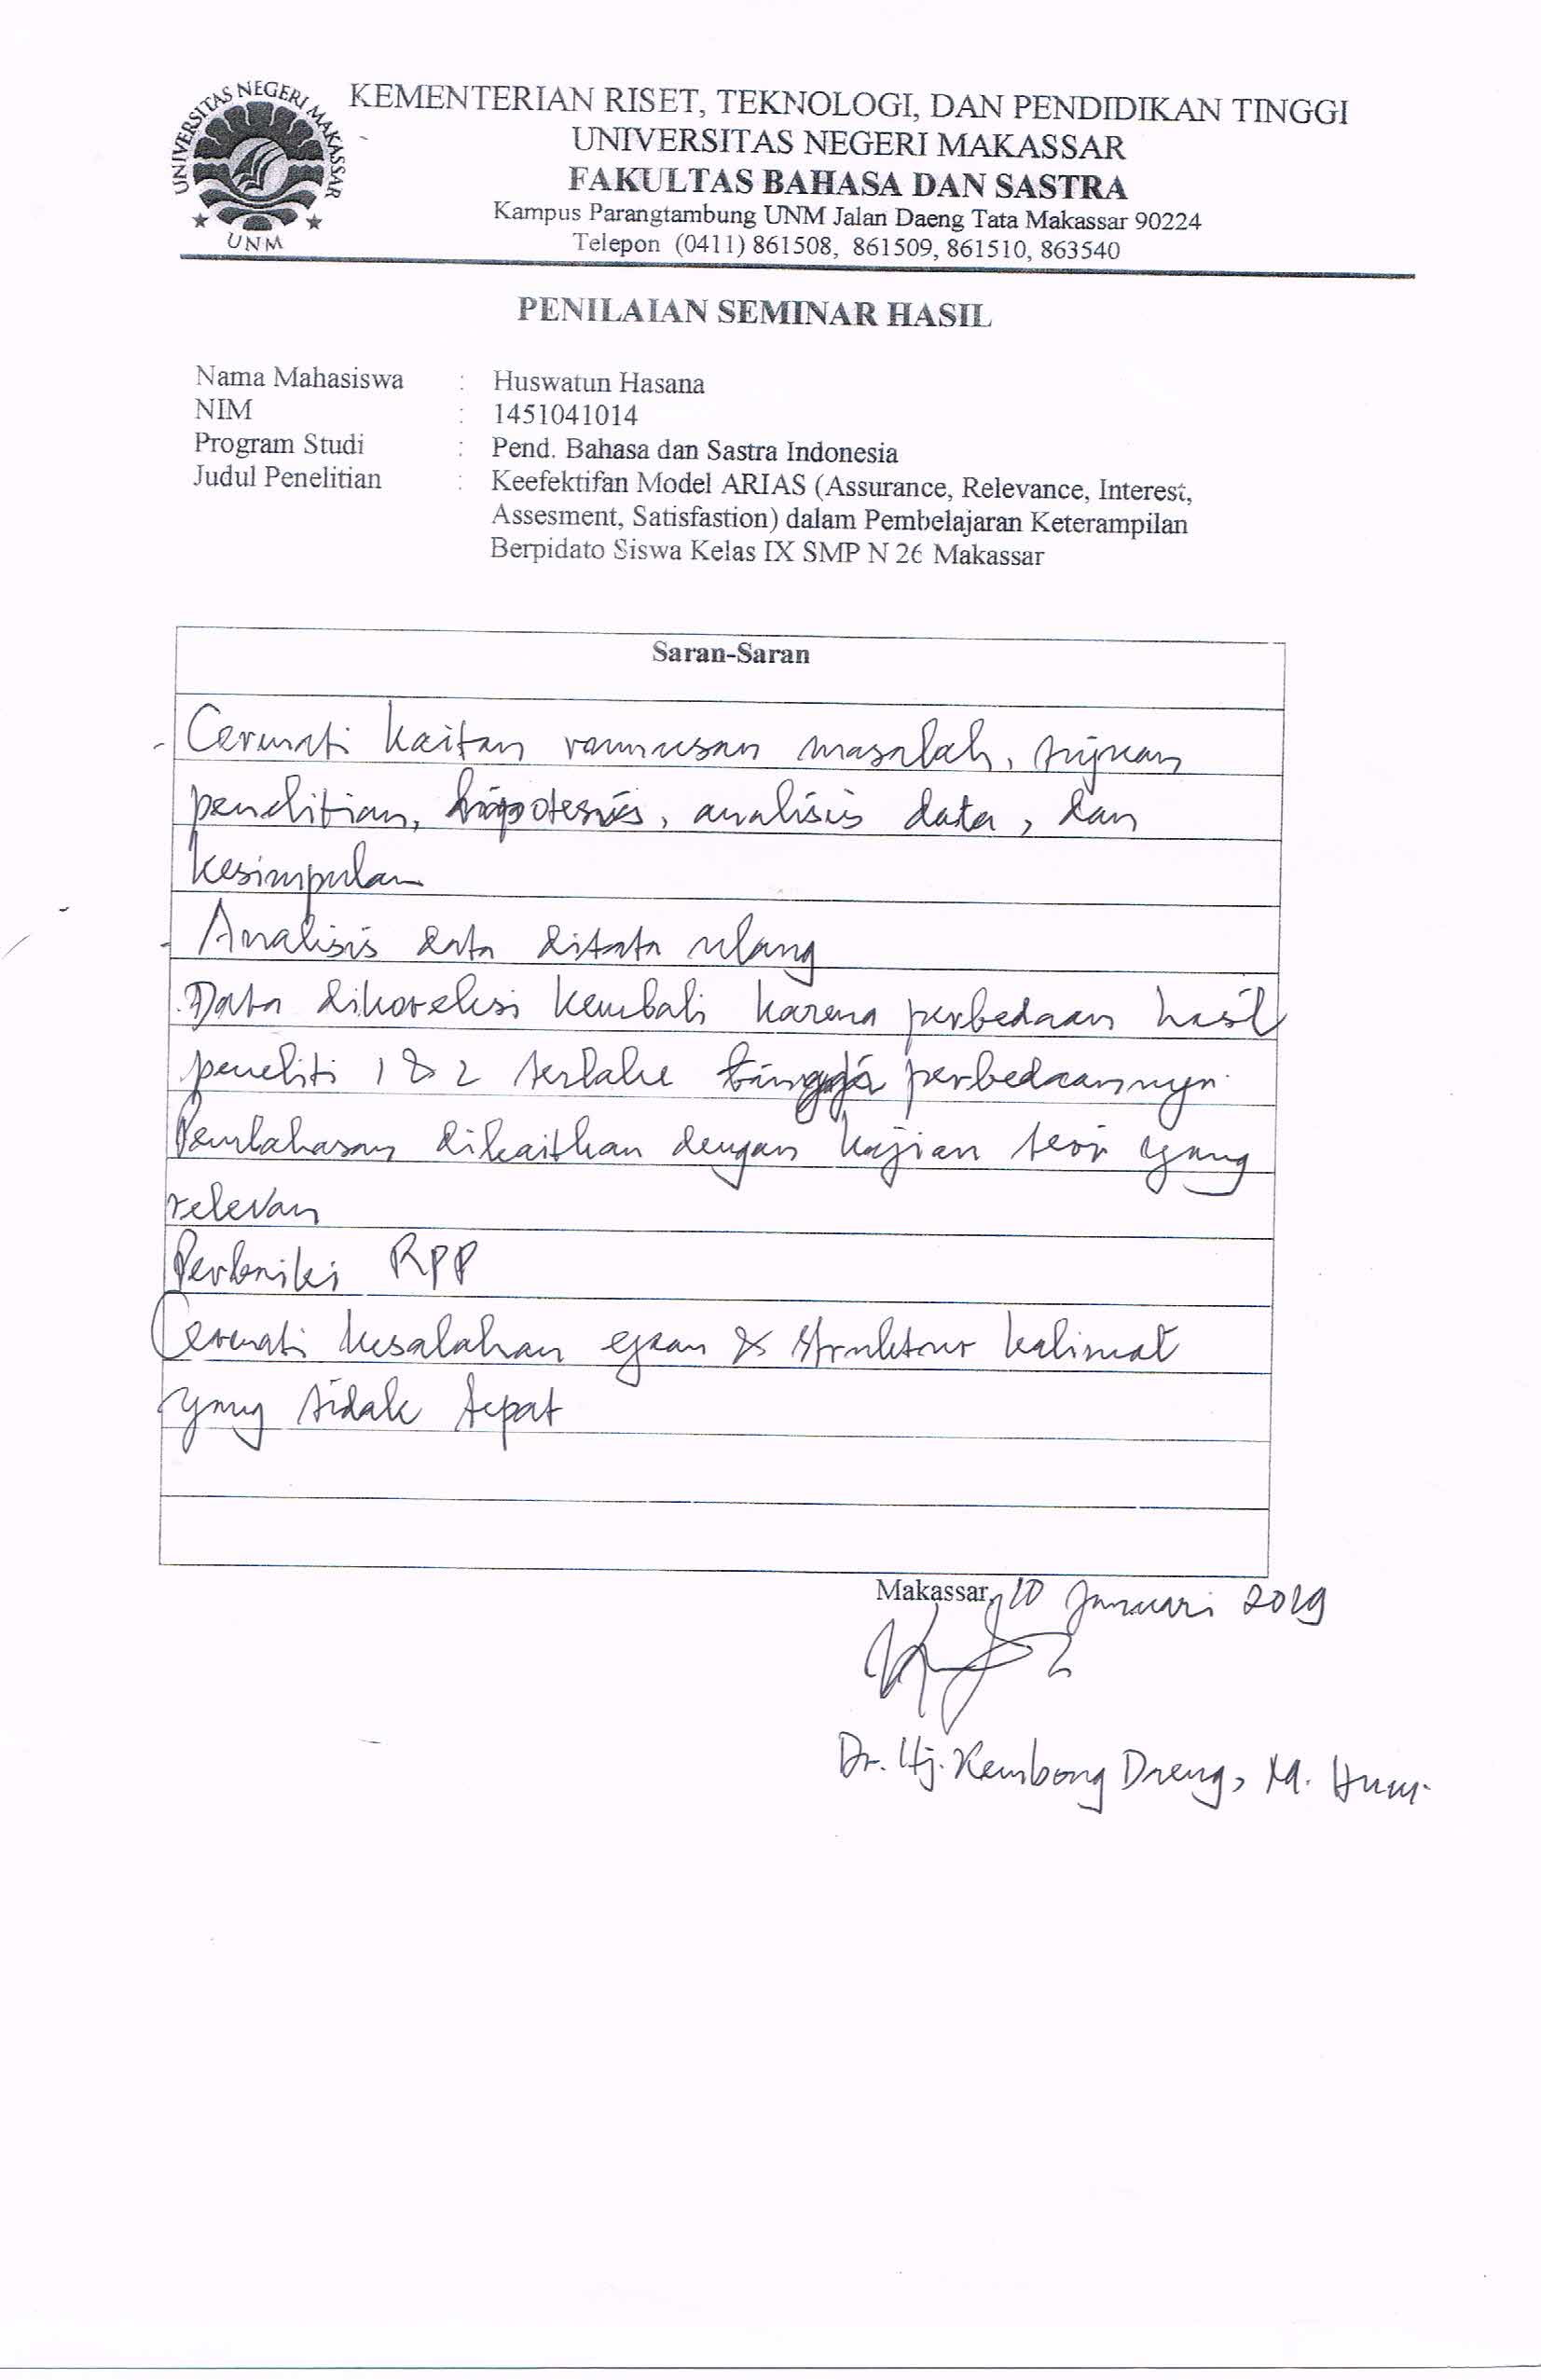 UNIVERSITAS NEGERI MAKASSAR
UNM
KEMENTERIAN RISET, TEKNOLOGI, DAN PENDIDIKAN TINGGI
UNIVERSITAS NEGERI MAKASSAR
FAKULTAS BAHASA DAN SASTRA
Kampus Parangtambung UNM Jalan Daeng Tata Makassar 90224
Telepon (0411) 861508, 861509, 861510, 863540
PENILAIAN SEMINAR HASIL
Nama Mahasiswa : Huswatun Hasana
NIM : 1451041014
Program Studi : Pend. Bahasa dan Sastra Indonesia
Judul Penelitian : Keefektifan Model ARIAS (Assurance, Relevance, Interest,
Assesment, Satisfastion) dalam Pembelajaran Keterampilan
Berpidato Siswa Kelas IX SMP N 26 Makassar
Saran-Saran
- Cermati kaitan rumusan masalah, tujuan
penelitian, hipotesis, analisis data, dan
kesimpulan
- Analisis data ditata ulang
Data dikoreksi kembali karena perbedaan hasil
peneliti 1 & 2 terlalu tinggi perbedaannya.
Pembahasan dikaitkan dengan kajian teori yang
relevan
Perbaiki RPP
Cermati kesalahan ejaan & struktur kalimat
yang tidak tepat
Makassar, 10 Januari 2019
Dr. Hj. Kembong Daeng, M. Hum.